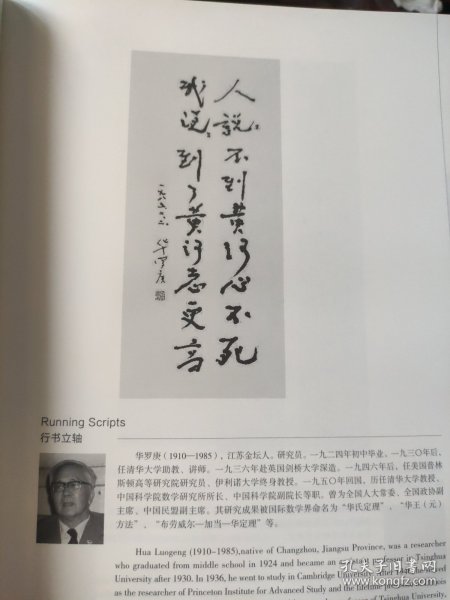 人说。不到黄河心不死
我说。到了黄河志更高
华罗庚
Running Scripts
行书立轴
华罗庚（1910—1985），江苏金坛人。研究员。一九二四年初中毕业。一九三〇年后，
任清华大学助教、讲师。一九三六年赴英国剑桥大学深造。一九四六年后，任美国普林
斯顿高等研究院研究员、伊利诺大学终身教授。一九五〇年回国，历任清华大学教授、
中国科学院数学研究所所长、中国科学院副院长等职。曾为全国人大常委、全国政协副
主席、中国民盟副主席。其研究成果被国际数学界命名为“华氏定理”、“华·王（元）
方法”、“布劳威尔—加当—华定理”等。
Hua Luogeng (1910-1985),native of Changzhou, Jiangsu Province, was a researcher
who graduated from middle school in 1924 and became an assistant professor in Tsinghua
University after 1930. In 1936, he went to study in Cambridge University. After 1946, he served
as the researcher of Princeton Institute for Advanced Study and the lifetime professor
of Tsinghua University,
孔夫子旧书网